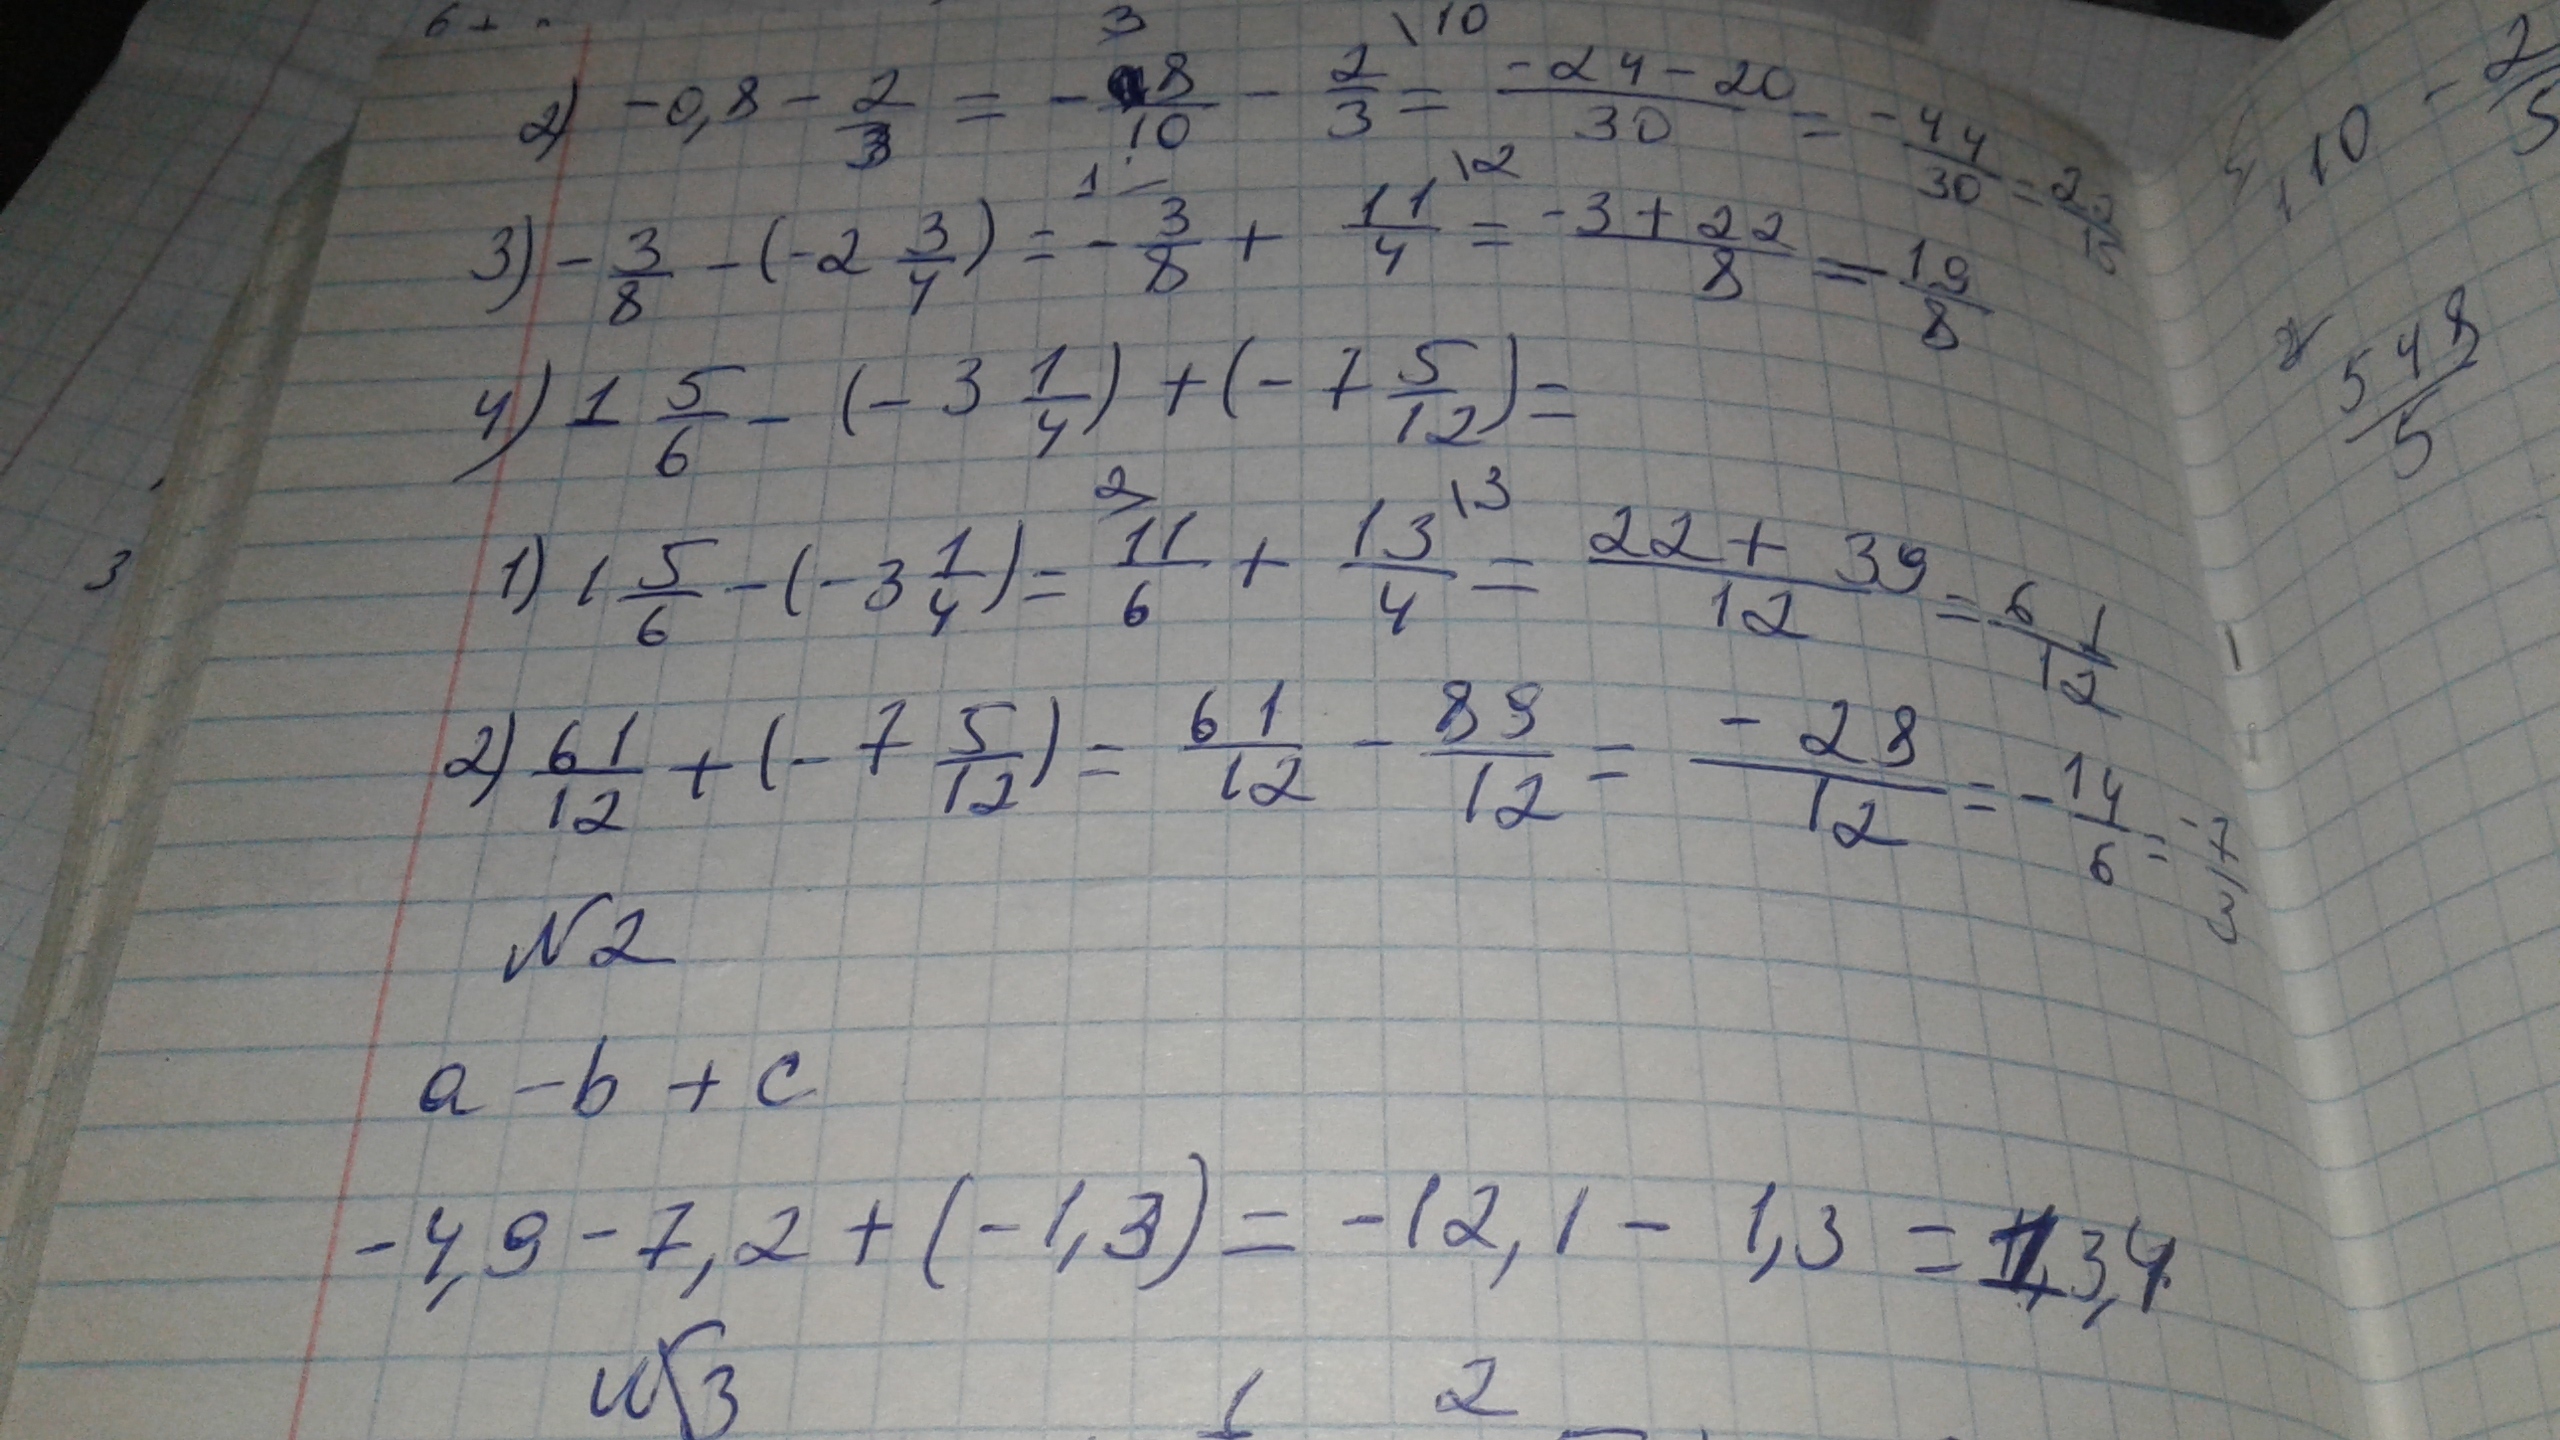 6 +
2) -0,8 - 2/3 = - 8/10 - 2/3 \10 = (-24-20)/30 = -44/30 = 22/15
3) - 3/8 - (-2 3/4) = - 3/8 + 11/4 \2 = (-3+22)/8 = 19/8
4) 1 5/6 - (-3 1/4) + (-7 5/12) =
1) 1 5/6 - (-3 1/4) = 11/6 + 13/4 \3 = (22+39)/12 = 61/12
2) 61/12 + (-7 5/12) = 61/12 - 89/12 = -28/12 = -14/6 = -7/3
N2
a - b + c
-4,9 - 7,2 + (-1,3) = -12,1 - 1,3 = 13,4
N3
1 2
3
10 - 2/5
548/5